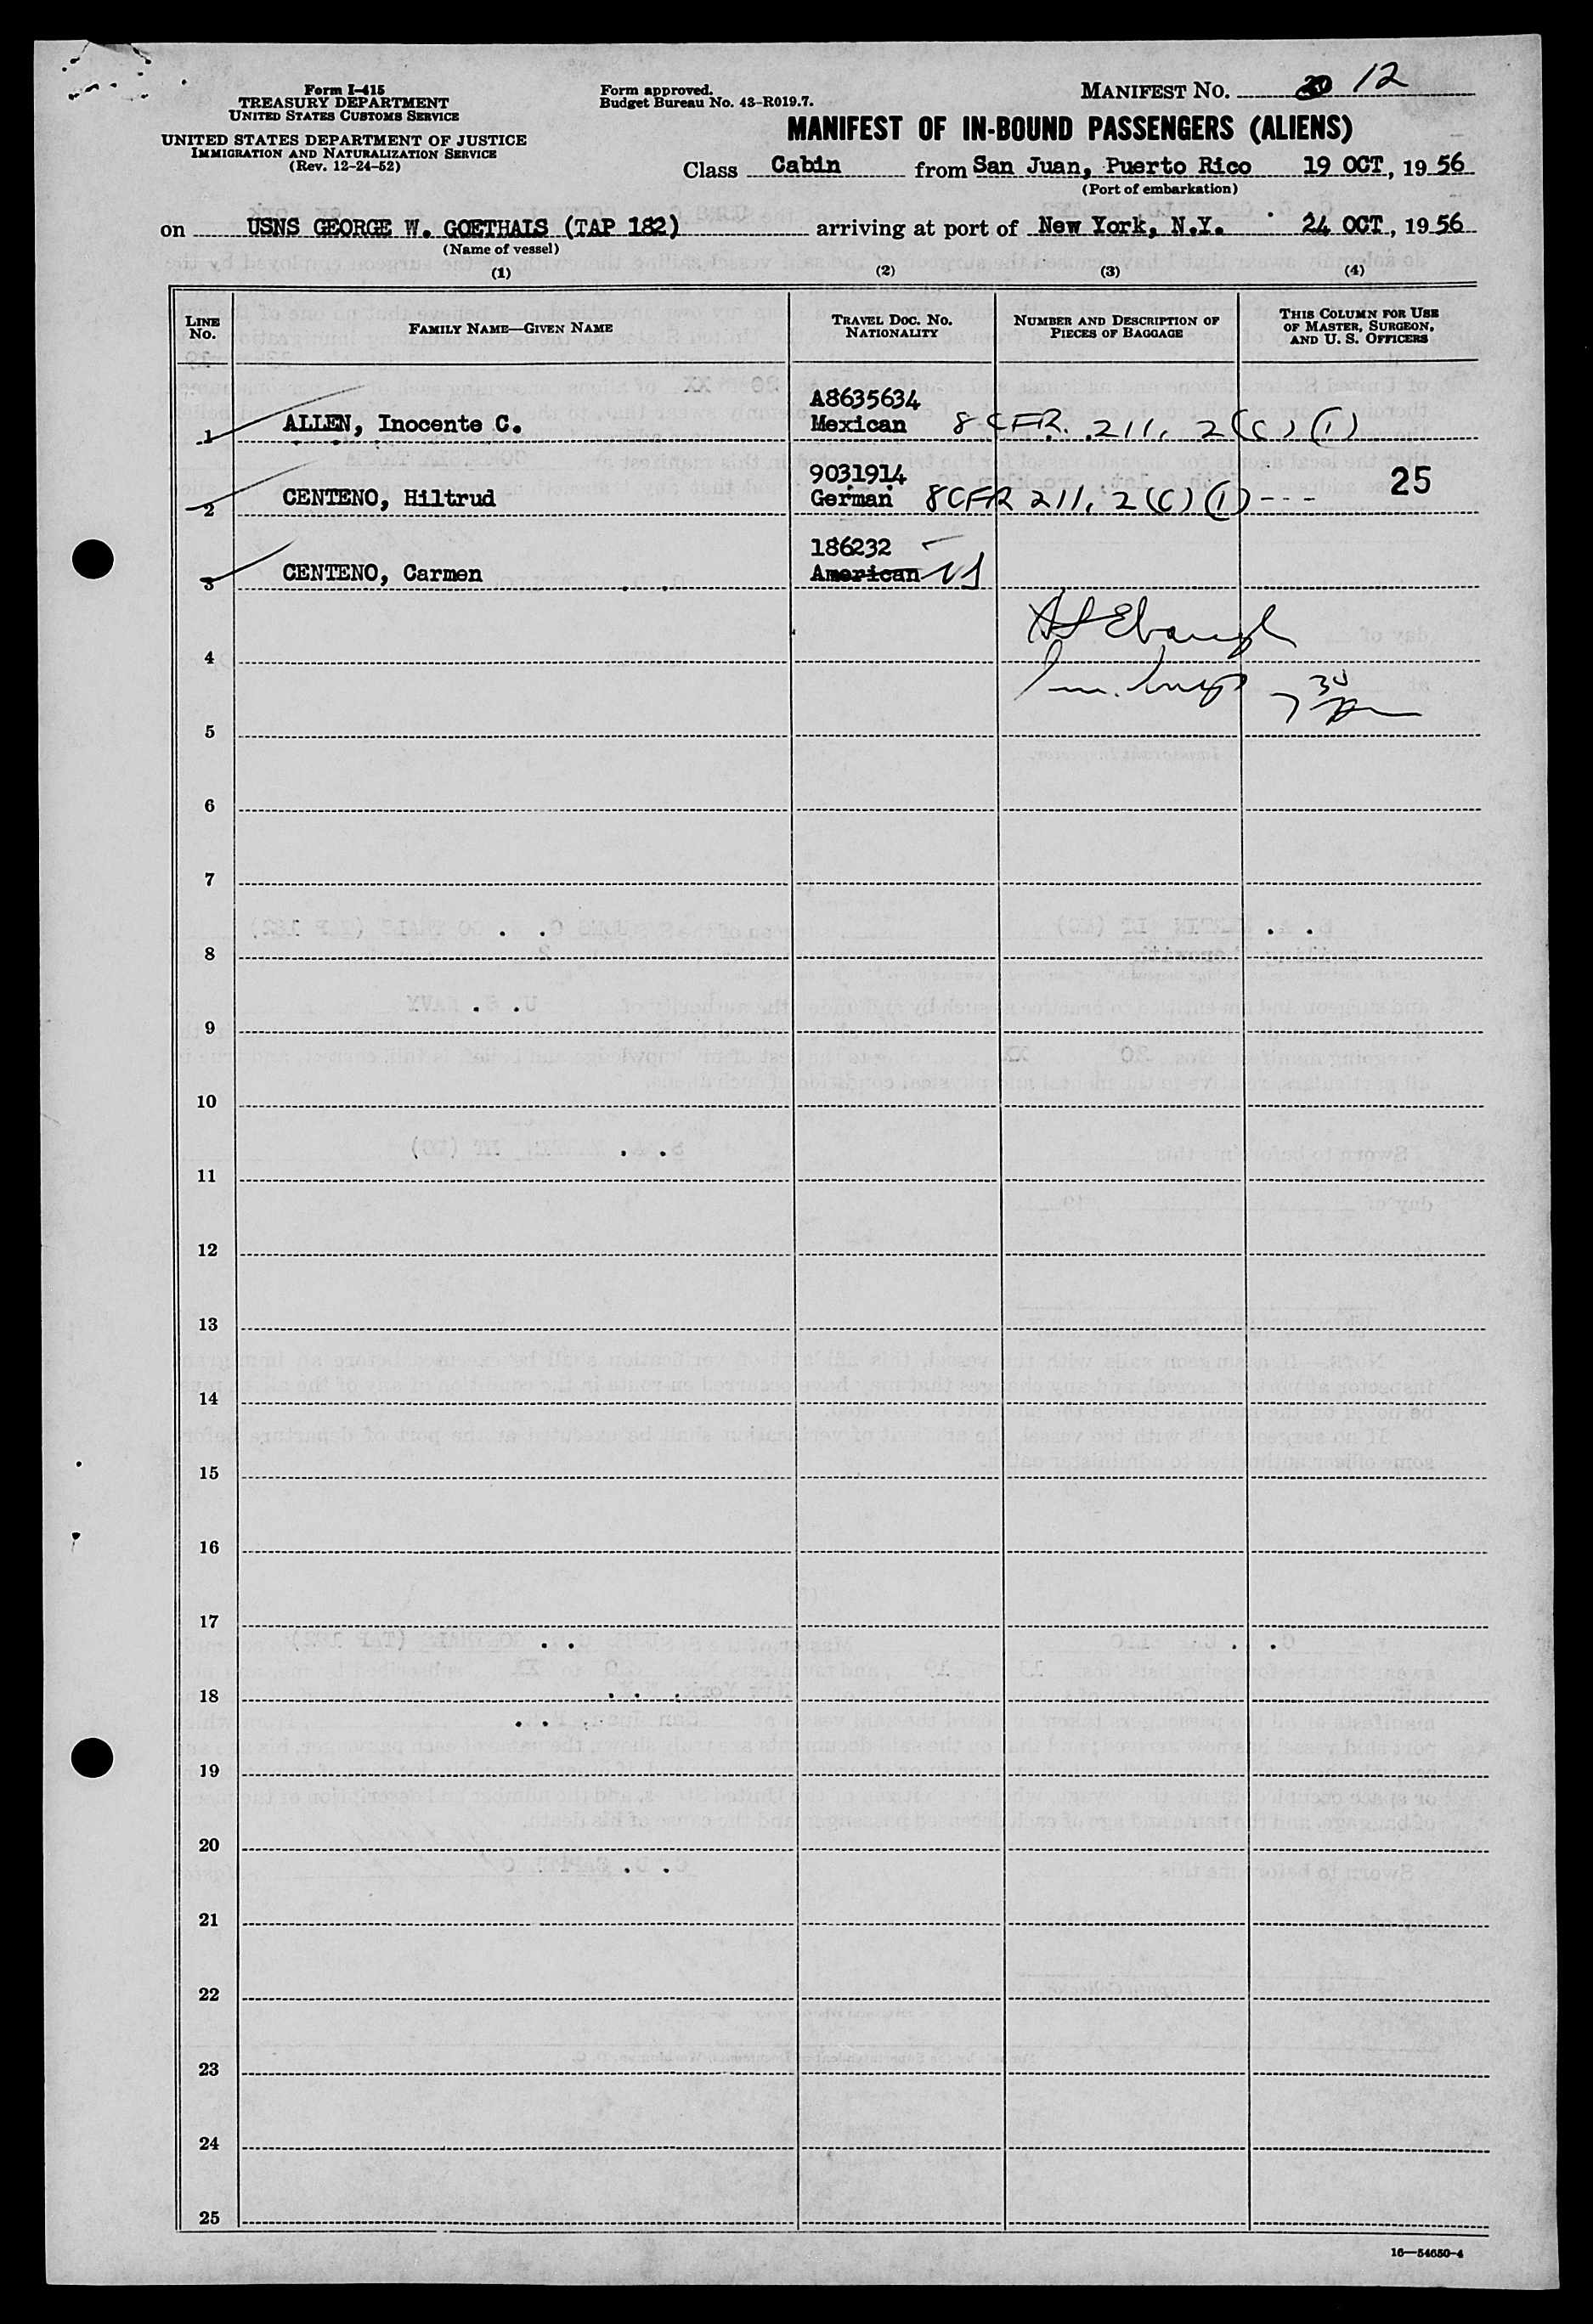 Form I-415
TREASURY DEPARTMENT
UNITED STATES CUSTOMS SERVICE
UNITED STATES DEPARTMENT OF JUSTICE
IMMIGRATION AND NATURALIZATION SERVICE
(Rev. 12-24-52)
Form approved.
Budget Bureau No. 43-R019.7.
MANIFEST NO. 20 12
MANIFEST OF IN-BOUND PASSENGERS (ALIENS)
Class Cabin from San Juan, Puerto Rico 19 OCT, 1956
(Port of embarkation)
on USNS GEORGE W. GOETHALS (TAP 182) arriving at port of New York, N.Y. 24 OCT, 1956
(Name of vessel)
(1) (2) (3) (4)
LINE NO. FAMILY NAME—GIVEN NAME TRAVEL DOC. NO. NATIONALITY NUMBER AND DESCRIPTION OF PIECES OF BAGGAGE THIS COLUMN FOR USE OF MASTER, SURGEON, AND U. S. OFFICERS
A8635634
1 ALLEN, Inocente C. Mexican 8 CFR. 211. 2(C)(1)
9031914 25
2 CENTENO, Hiltrud German 8 CFR 211. 2(C)(1)---
186232
3 CENTENO, Carmen American US
4
5
6
7
8
9
10
11
12
13
14
15
16
17
18
19
20
21
22
23
24
25
16—54650-4